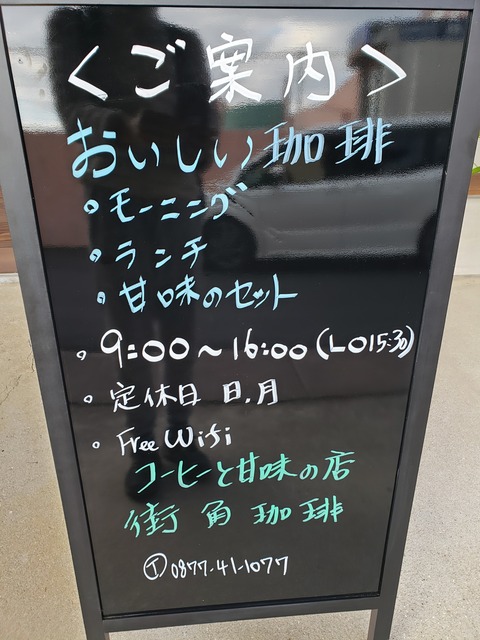 <ご案内>
おいしい珈琲
・モーニング
・ランチ
・甘味のセット
・9:00～16:00(LO15:30)
・定休日 日,月
・Free Wifi
コーヒーと甘味の店
街角珈琲
Ⓣ0877-41-1077